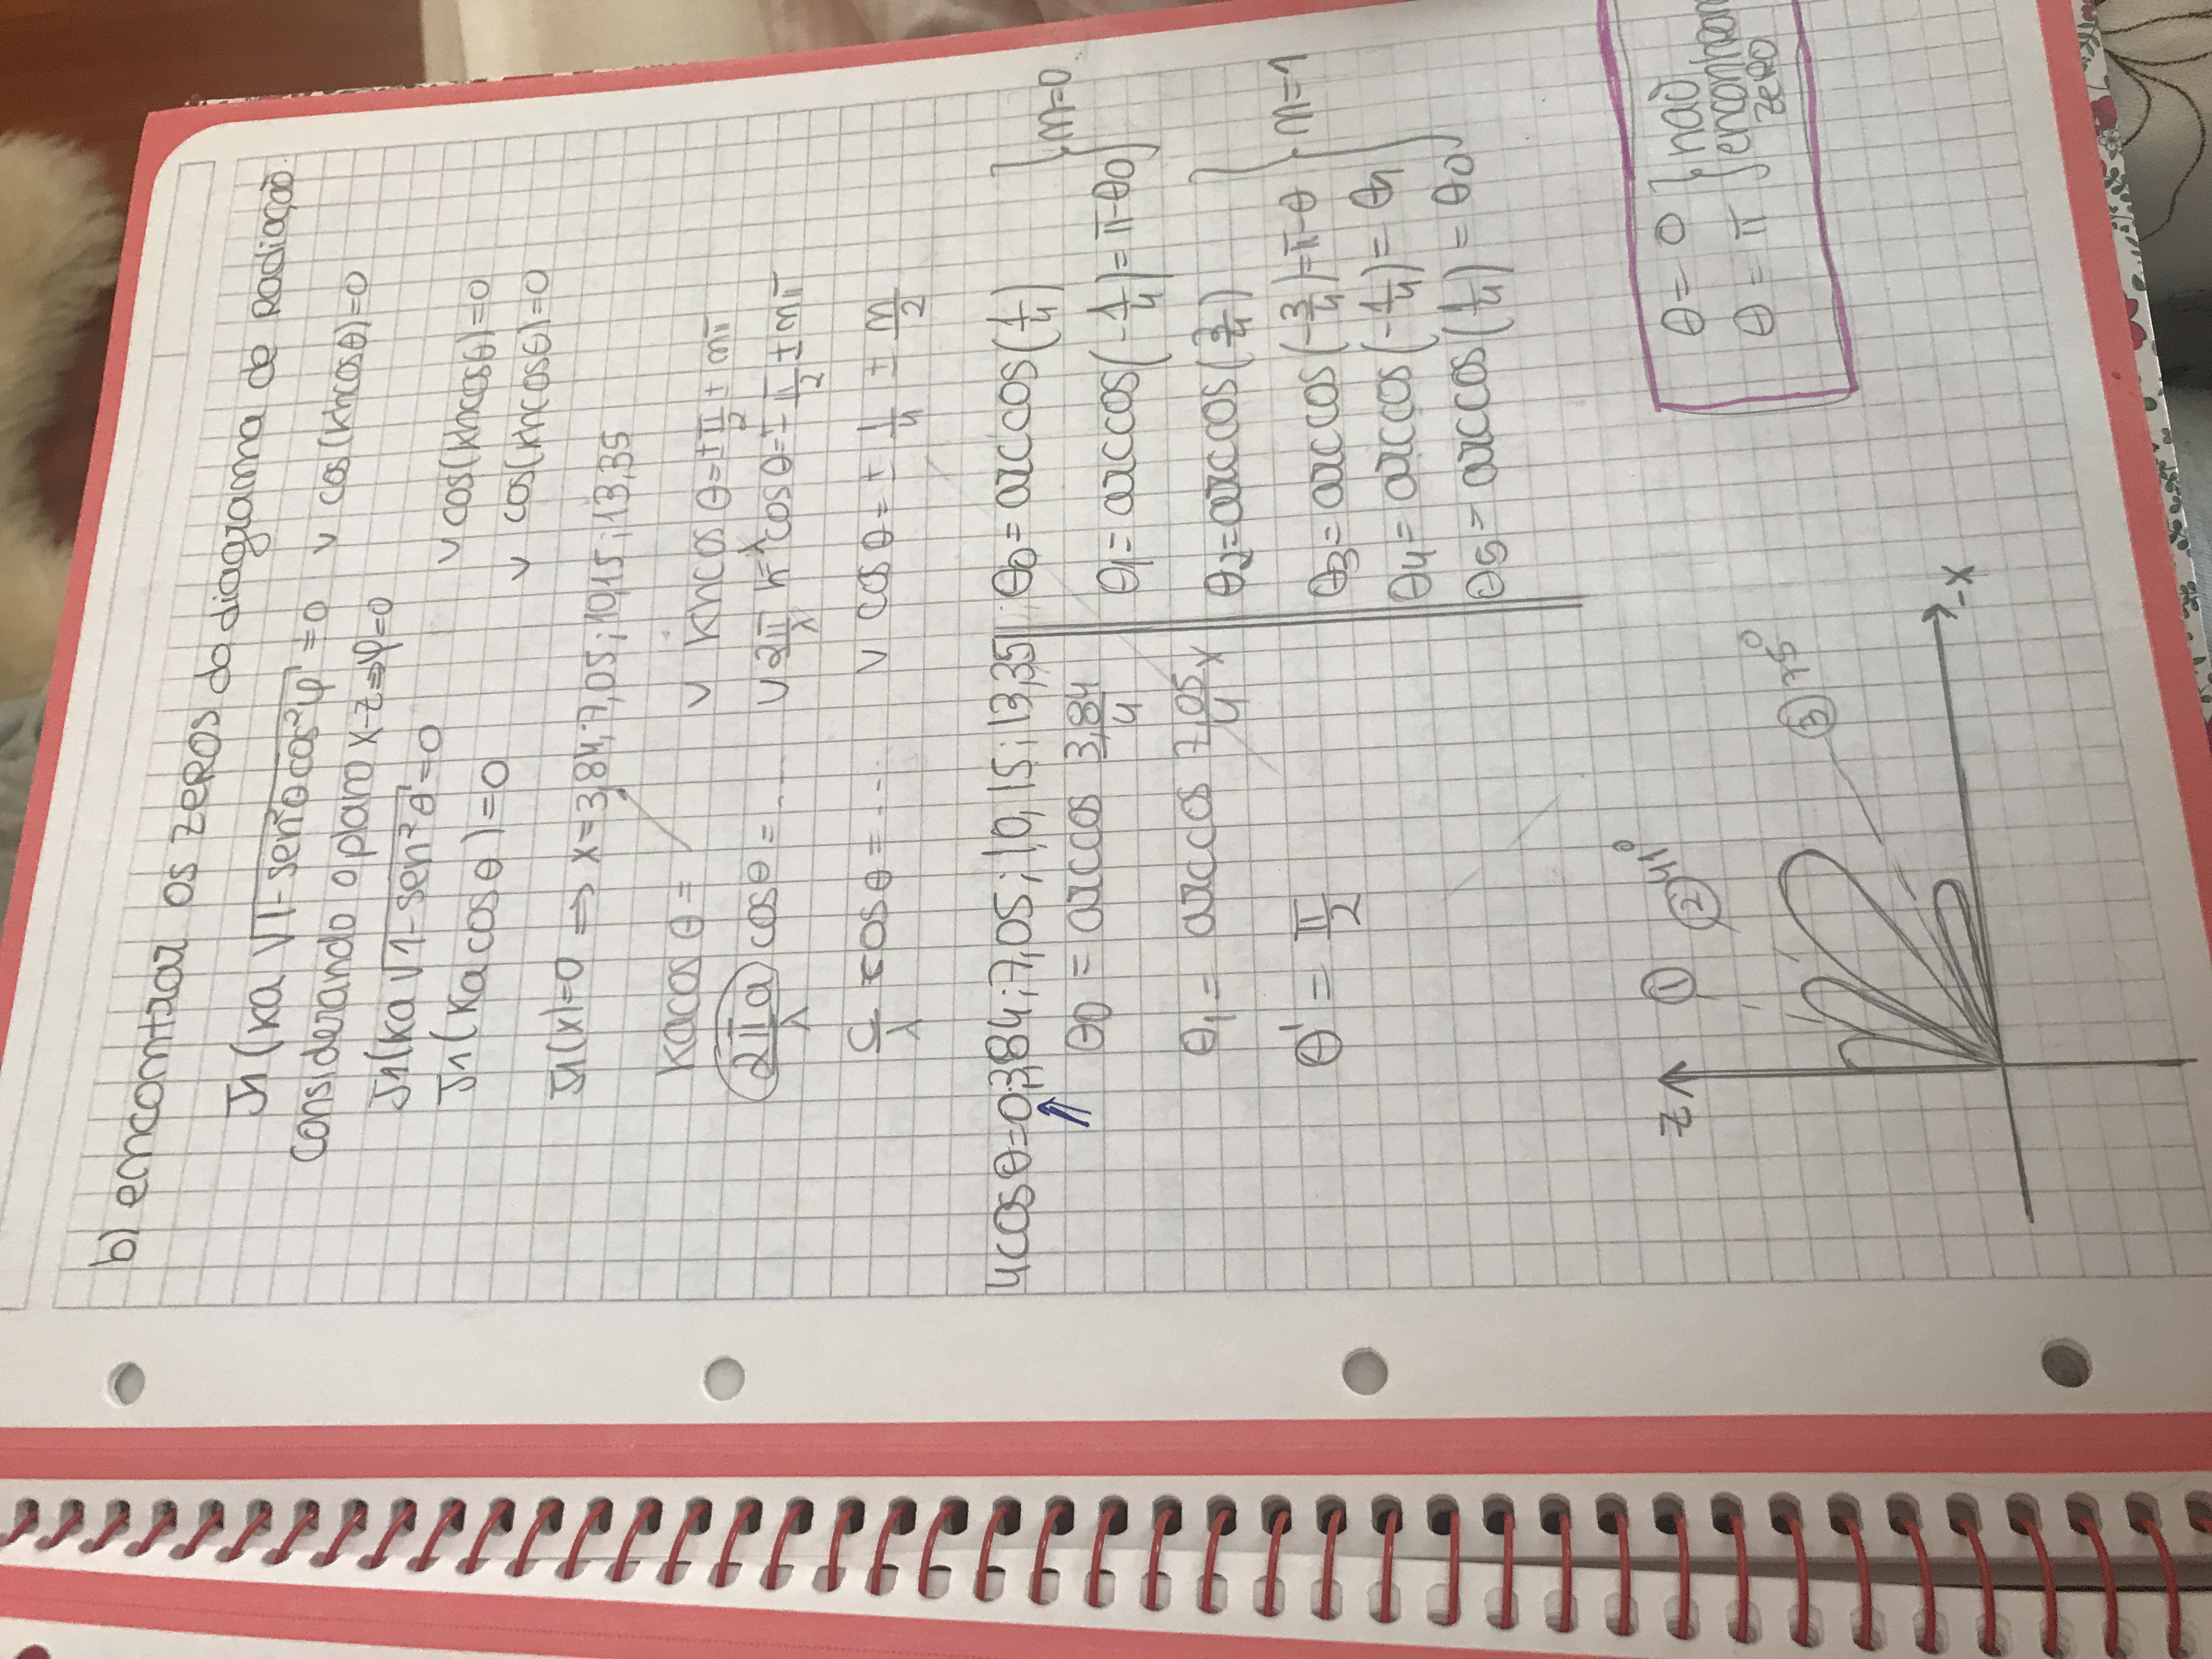 b) encontrar os zeros do diagrama de radiação.
J1(ka √1-sen²θcos²φ = 0 ∨ cos(khcosθ)=0
Considerando o plano x-z ⇒ φ=0
J1(ka √1-sen²θ = 0 ∨ cos(khcosθ)=0
J1(ka cos θ)=0 ∨ cos(khcosθ)=0
J1(x)=0 ⇒ x=3,84; 7,05; 10,15; 13,35
kacos θ = ∨ khcos θ=±π/2 ± nπ
2πa/λ cosθ = .... ∨ 2π/λ h λ cosθ=± π/2 ± nπ
C/λ cosθ = .... ∨ cosθ= ± 1/4 ± n/2
4cosθ=0;3,84;7,05;10,15;13,35
θ0 = arccos 3,84/4
θ1 = arccos 7,05/4 x
θ' = π/2
θ0= arccos(1/4)
θ1= arccos(-1/4)= π-θ0
n=0
θ2=arccos(3/4)
θ3= arccos(-3/4)=π-θ
θ4= arccos(-1/4)= θ1
θ5 = arccos(1/4) = θ0
n=1
z ① ② 41°
③ 75°
-x
θ= 0
θ = π
não
zero